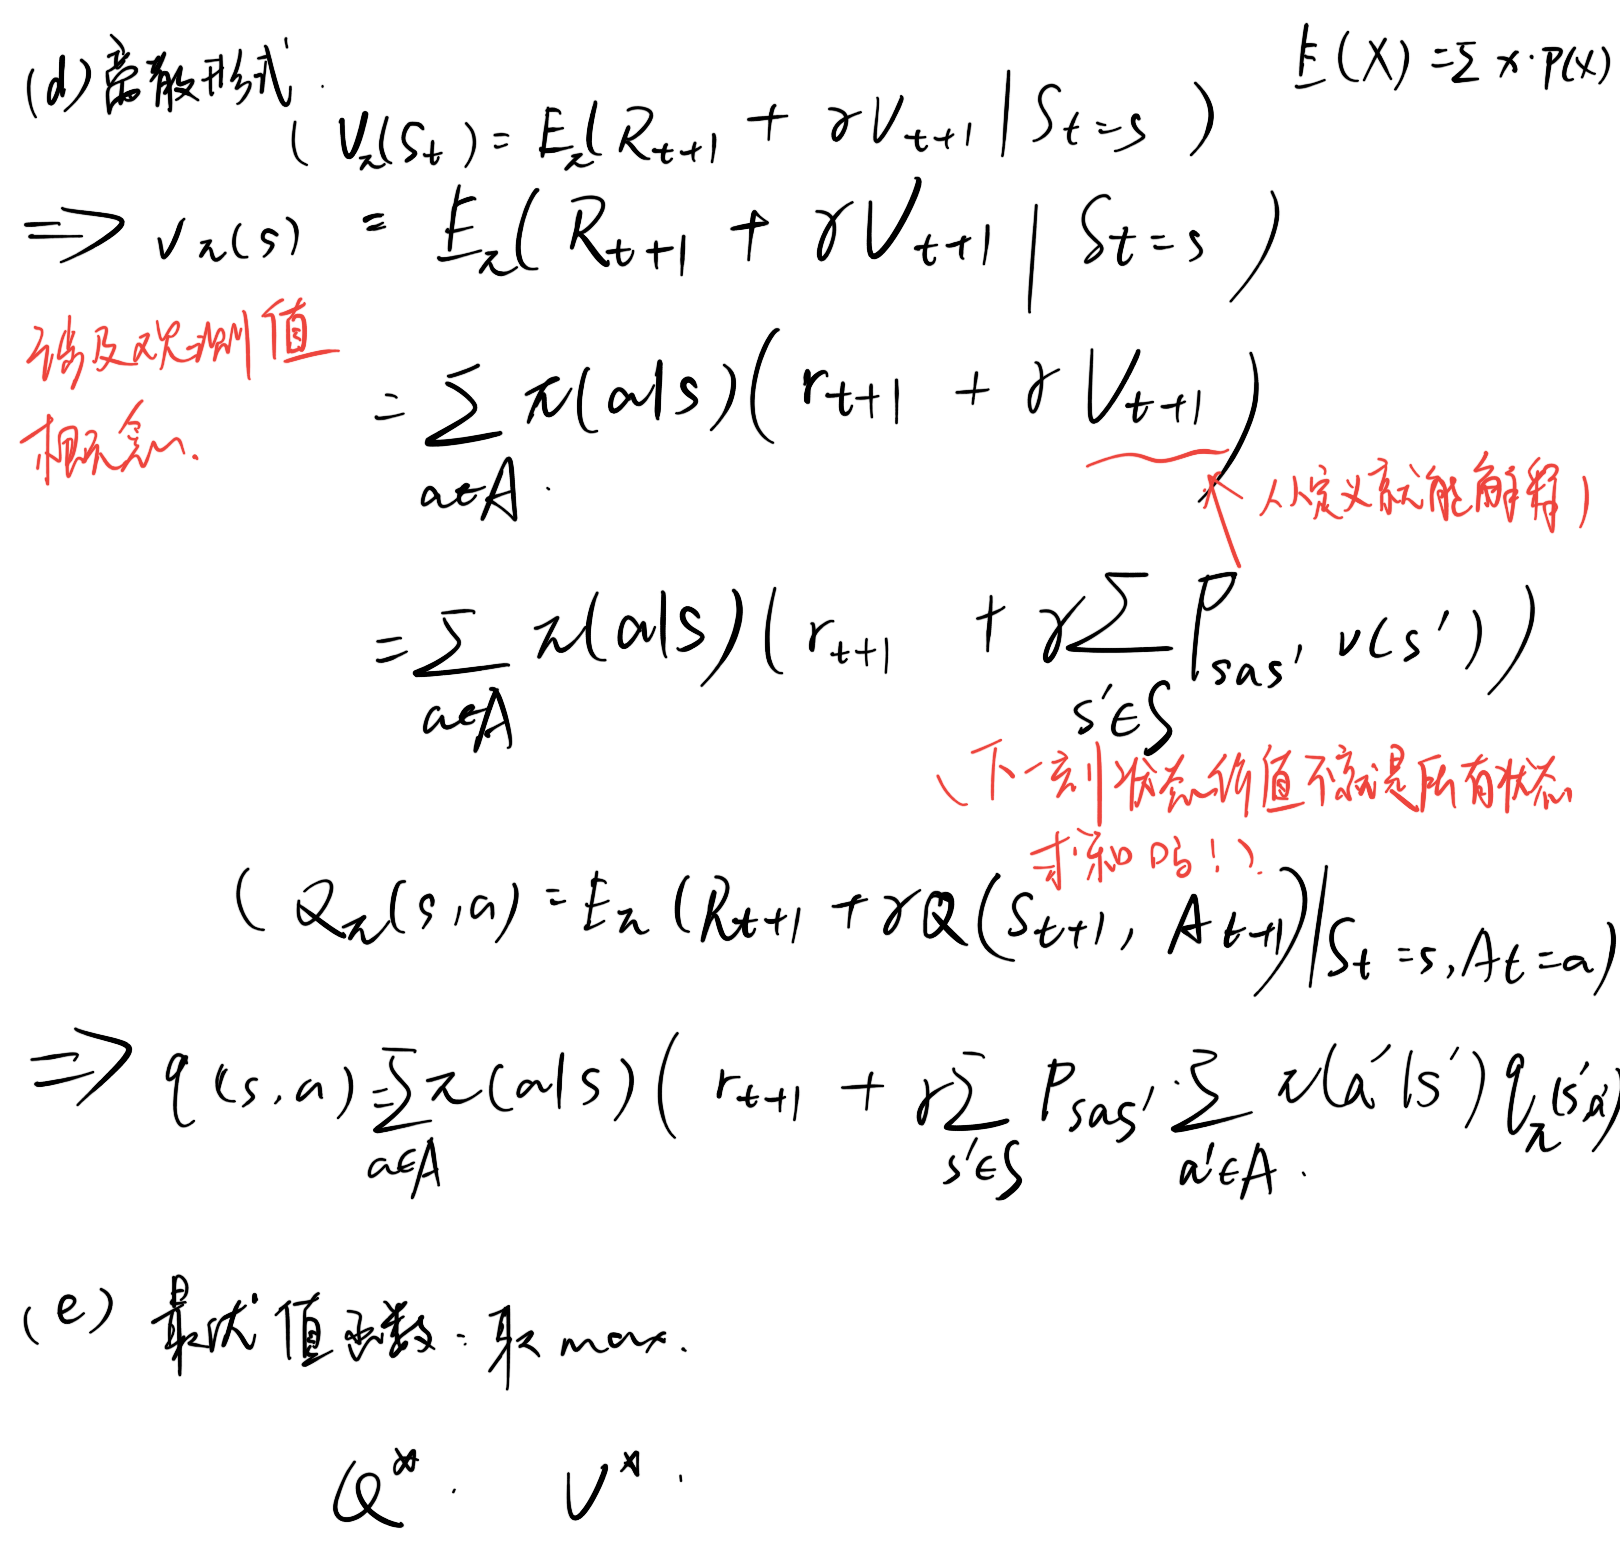 (d) 离散形式. E(X) = Σ x·P(x)
( V_π(S_t) = E_π( R_{t+1} + γV_{t+1} | S_t=s )
⇒ v_π(s) = E_π( R_{t+1} + γV_{t+1} | S_t=s )
涉及观测值
概念.
= Σ_{a∈A} π(a|s)( r_{t+1} + γ V_{t+1} )
从定义就能解释)
= Σ_{a∈A} π(a|s)( r_{t+1} + γ Σ_{s'∈S} P_{sas'} v(s') )
(下一刻状态价值不就是所有状态
求和吗!)
( Q_π(s,a) = E_π (R_{t+1} + γQ(S_{t+1}, A_{t+1}) | S_t=s, A_t=a)
⇒ q(s,a) = Σ_{a∈A} π(a|s) ( r_{t+1} + γ Σ_{s'∈S} P_{sas'} · Σ_{a'∈A} π(a'|s') q_π(s',a')
(e) 最优值函数: 取 max.
Q* . V* .